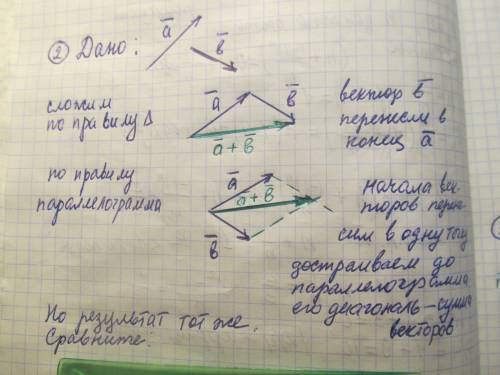 ② Дано: a̅ b̅
сложим
по правилу Δ
a̅ b̅
a̅ + b̅
вектор b̅
перенесли в
конец a̅
по правилу
параллелограмма
a̅
a + b̅
b̅
начала век-
торов перене-
сли в одну точку
достраиваем до
параллелограмма
его диагональ – сумма
векторов
Но результат тот же.
Сравните.